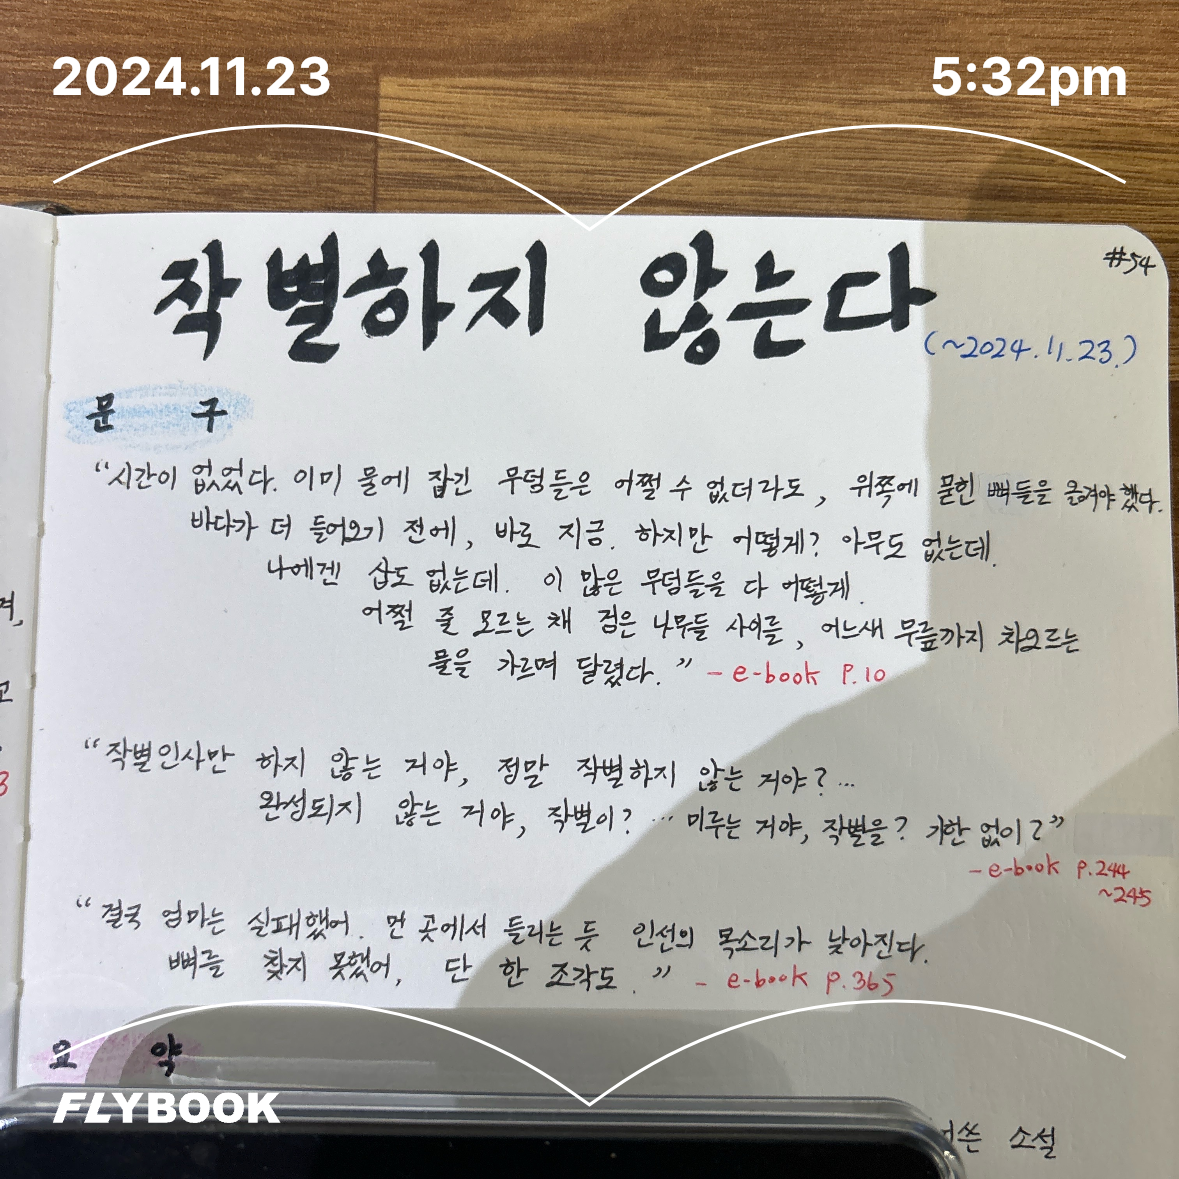 2024.11.23 5:32pm
#54
작별하지 않는다
(~2024.11.23.)
문 구
"시간이 없었다. 이미 물에 잠긴 무덤들은 어쩔 수 없더라도, 위쪽에 묻힌 뼈들을 옮겨야 했다.
바다가 더 들어오기 전에, 바로 지금. 하지만 어떻게? 아무도 없는데.
나에겐 삽도 없는데. 이 많은 무덤들을 다 어떻게.
어쩔 줄 모르는 채 검은 나무들 사이를, 어느새 무릎까지 차오르는
물을 가르며 달렸다." - e-book P.10
"작별인사만 하지 않는 거야, 정말 작별하지 않는 거야?...
완성되지 않는 거야, 작별이? ... 미루는 거야, 작별을? 기한 없이?"
- e-book p.244
~245
"결국 엄마는 실패했어. 먼 곳에서 들리는 듯 인선의 목소리가 낮아진다.
뼈를 찾지 못했어, 단 한 조각도." - e-book p.365
요 약
FLYBOOK
소설